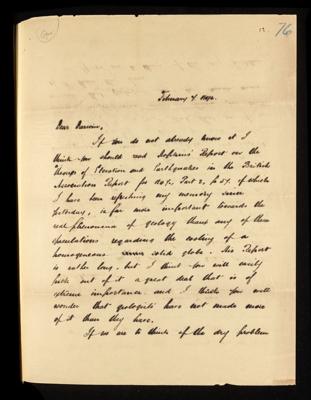 76
February 4
Dear Darwin,
If you do not already know it I
think you should read Hopkins' Report on the
Theory of Elevation and Earthquakes in the British
Association Report for 1847, Part 2, p. 57. of which
I have been refreshing my memory since
yesterday, is far more important towards the
real phenomena of geology than any of these
speculations regarding the cooling of a
homogeneous solid globe. This Report
is rather long, but I think you will easily
pick out of it a great deal that is of
extreme importance and I think you will
wonder that geologists have not made more
of it than they have.
If we are to think of the dry problem